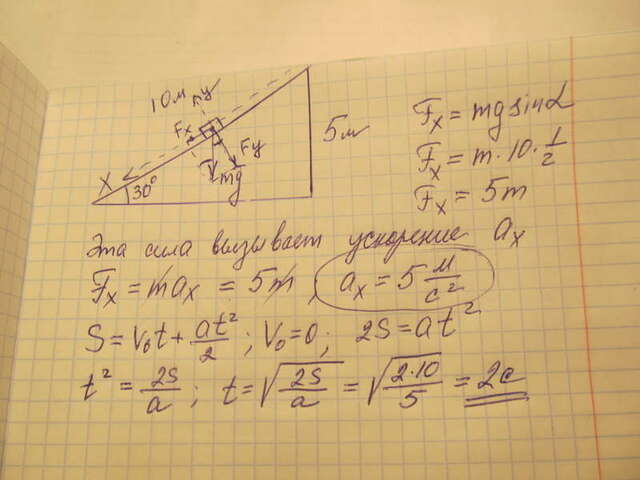 10м
y
Fx
Fy
mg
X
30°
5м
Fx = mg sin α
Fx = m·10·1/2
Fx = 5m
Эта сила вызывает ускорение ax
Fx = max = 5m, ax = 5 м/с²
S = V₀t + at²/2; V₀=0; 2S = at²
t² = 2S/a; t = √(2S/a) = √(2·10/5) = 2с